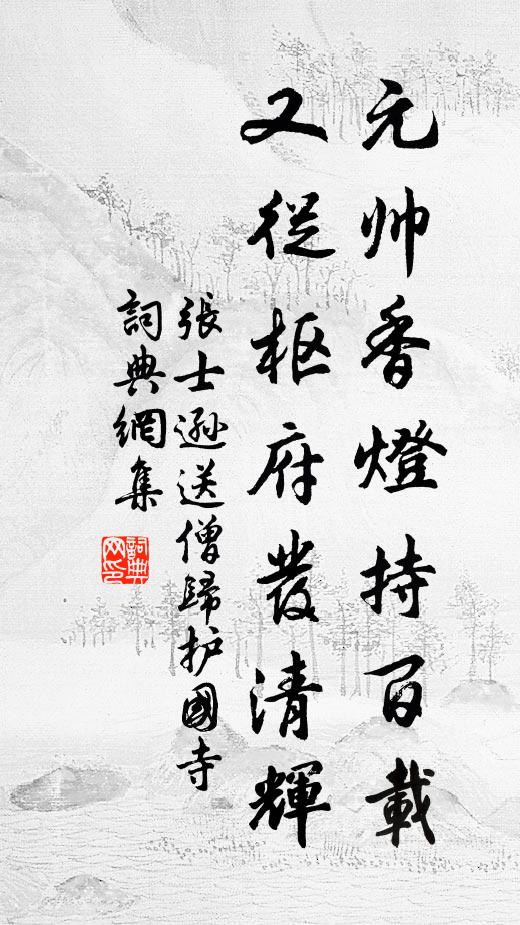 元帅香燈持百載
又從枢府發清輝
張士遜送僧歸护國寺
詞典網集
詞典网印